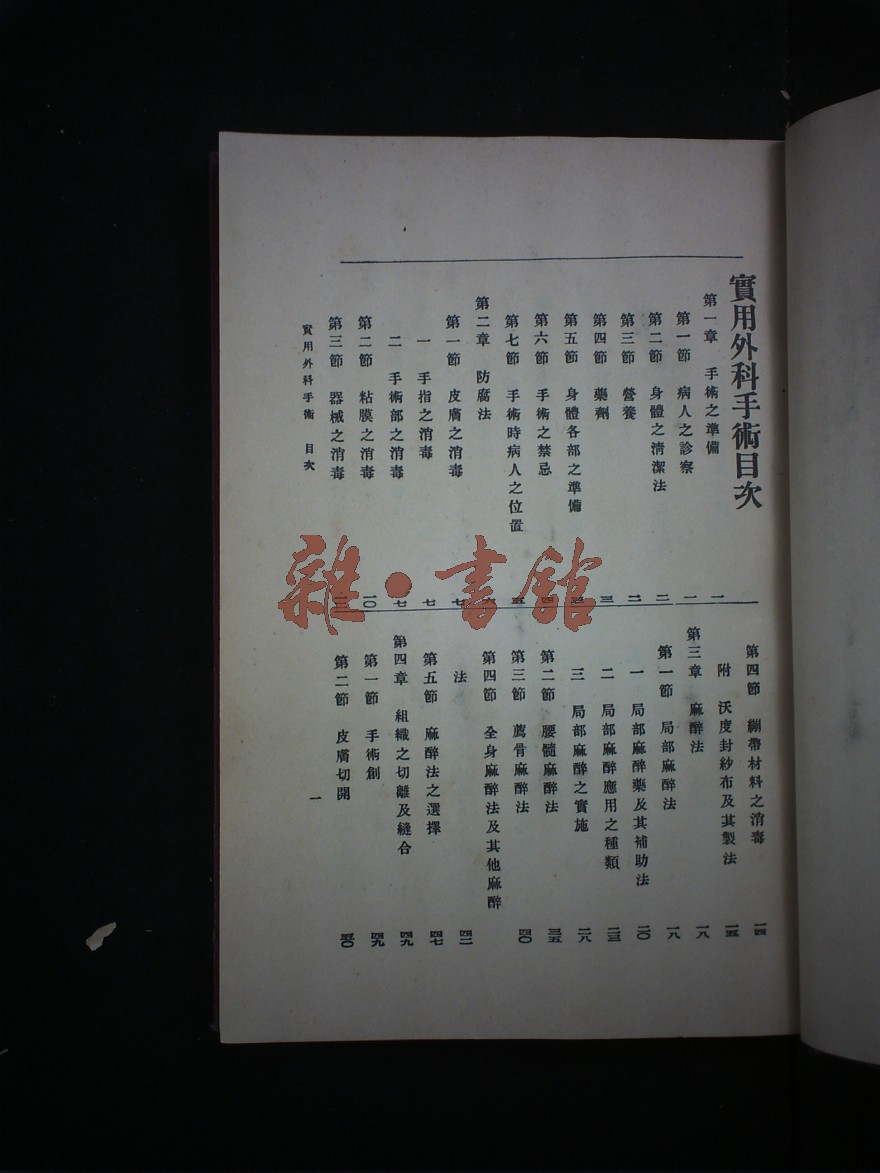 實用外科手術目次
第一章 手術之準備 一
第一節 病人之診察 一
第二節 身體之淸潔法 二
第三節 營養 二
第四節 藥劑 三
第五節 身體各部之準備
第六節 手術之禁忌 四
第七節 手術時病人之位置 五
第二章 防腐法
第一節 皮膚之消毒 七
一 手指之消毒 七
二 手術部之消毒 七
第二節 粘膜之消毒 一〇
第三節 器械之消毒
第四節 綳帶材料之消毒 一四
附 沃度封紗布及其製法 一五
第三章 麻醉法 一八
第一節 局部麻醉法 一八
一 局部麻醉藥及其補助法 二〇
二 局部麻醉應用之種類 二三
三 局部麻醉之實施 二八
第二節 腰髓麻醉法 三五
第三節 薦骨麻醉法 四〇
第四節 全身麻醉法及其他麻醉
法 四二
第五節 麻醉法之選擇 四七
第四章 組織之切離及縫合 四九
第一節 手術創 四九
第二節 皮膚切開 五〇
實用外科手術 目次
一
雜·書館